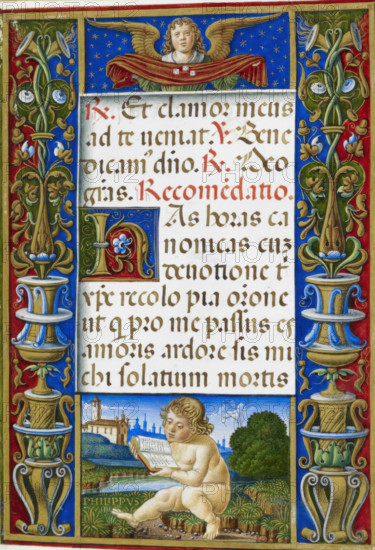 R. Et clamor meus
ad te ueniat V. Bene
dicam⁹ dño. R. Deo
gr̃as. Recomẽdatio.
HAs horas ca
nonicas cuʒ
deuotione t̃
xp̃e recolo pia or̃one
ut q̃ pro me passus es
amoris ardore sis mi
chi solatium mortis
PHILIPPVS